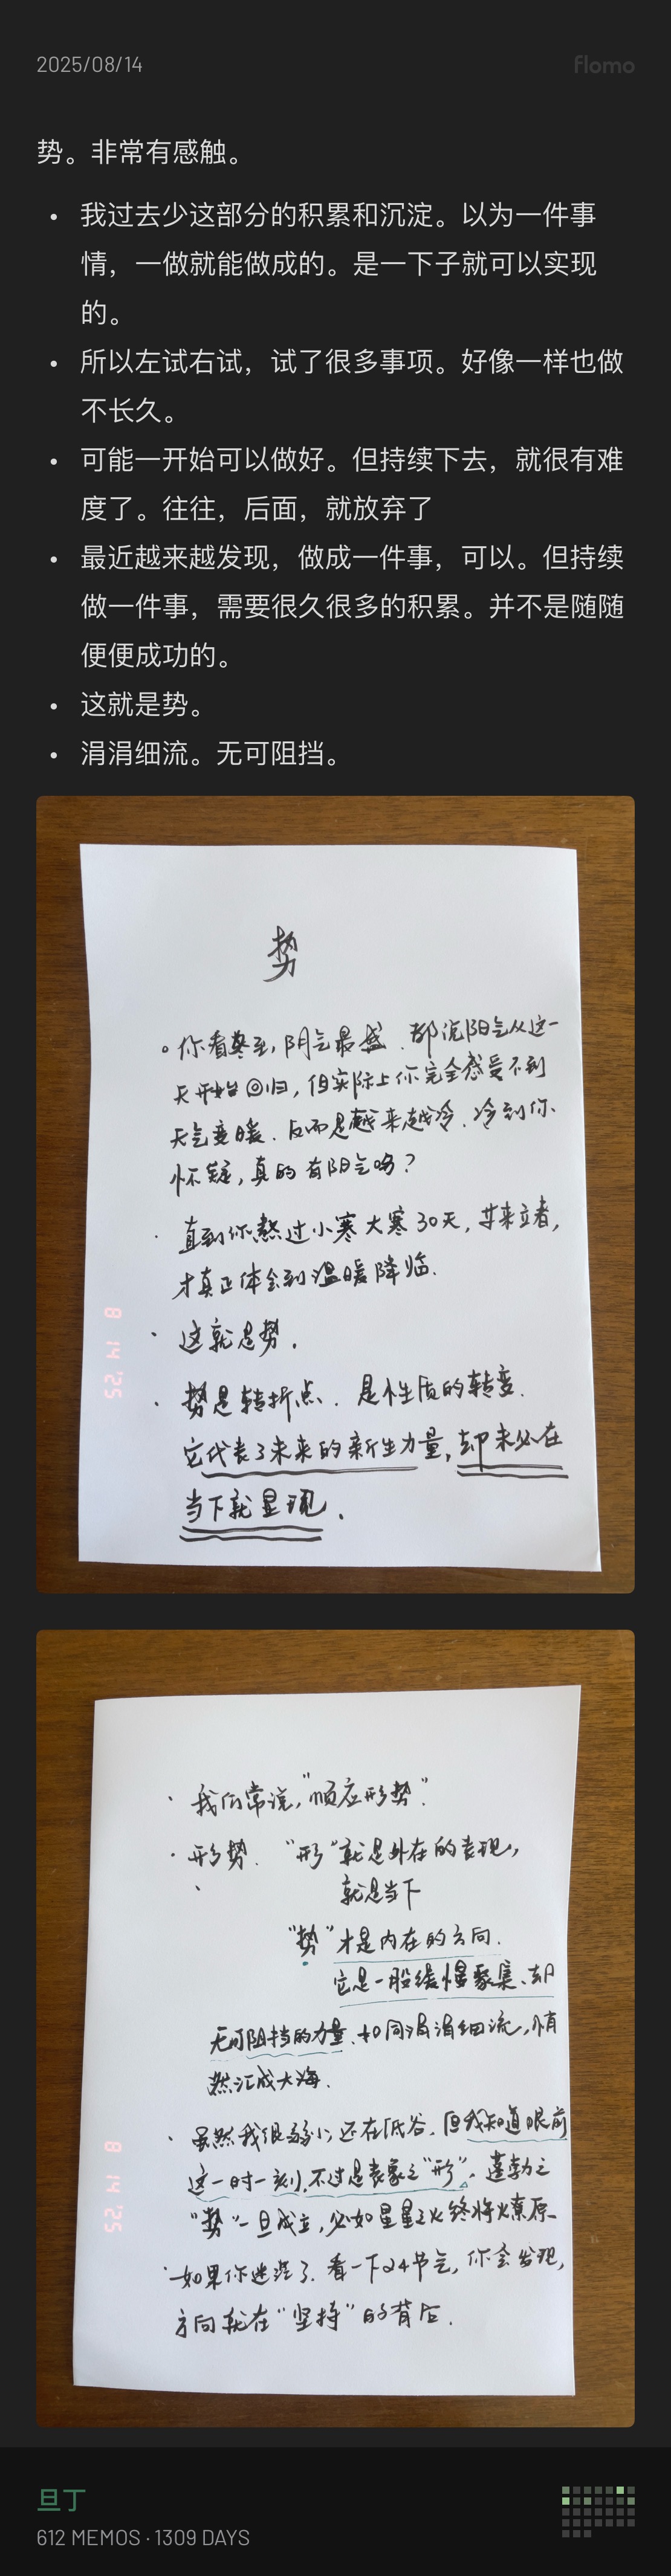 2025/08/14
flomo
势。非常有感触。
• 我过去少这部分的积累和沉淀。以为一件事
情，一做就能做成的。是一下子就可以实现
的。
• 所以左试右试，试了很多事项。好像一样也做
不长久。
• 可能一开始可以做好。但持续下去，就很有难
度了。往往，后面，就放弃了
• 最近越来越发现，做成一件事，可以。但持续
做一件事，需要很久很多的积累。并不是随随
便便成功的。
• 这就是势。
• 涓涓细流。无可阻挡。
势
。你看冬至，阴气最盛．都说阳气从这一
天开始回归，但实际上你完全感受不到
天气变暖．反而是越来越冷．冷到你
怀疑，真的有阳气吗？
· 直到你熬过小寒大寒30天，等来立春，
才真正体会到温暖降临．
· 这就是势．
· 势是转折点．是性质的转变．
它代表了未来的新生力量，却未必在
当下就显现．
8 14 '25
· 我们常说，“顺应形势”．
· 形势．“形”就是外在的表现，
就是当下
“势”才是内在的方向．
它是一股缓慢聚集、却
无可阻挡的力量．如同涓涓细流，悄
然汇成大海．
· 虽然我很弱小，还在低谷．但我知道眼前
这一时一刻，不过是表象之“形”．蓬勃之
“势”一旦成立，必如星星之火终将燎原．
· 如果你迷茫了．看一下24节气，你会发现，
方向就在“坚持”的背后．
8 14 '25
旦丁
612 MEMOS · 1309 DAYS